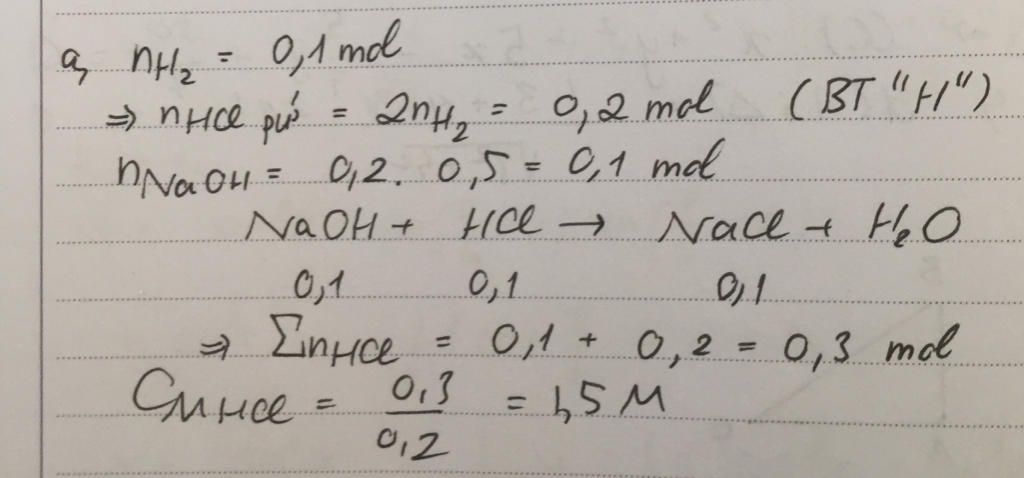 a, nH₂ = 0,1 mol
⇒ nHCl pứ = 2nH₂ = 0,2 mol (BT "H")
nNaOH = 0,2. 0,5 = 0,1 mol
NaOH + HCl → NaCl + H₂O
0,1 0,1 0,1
⇒ ΣnHCl = 0,1 + 0,2 = 0,3 mol
CMHCl = 0,3/0,2 = 1,5 M